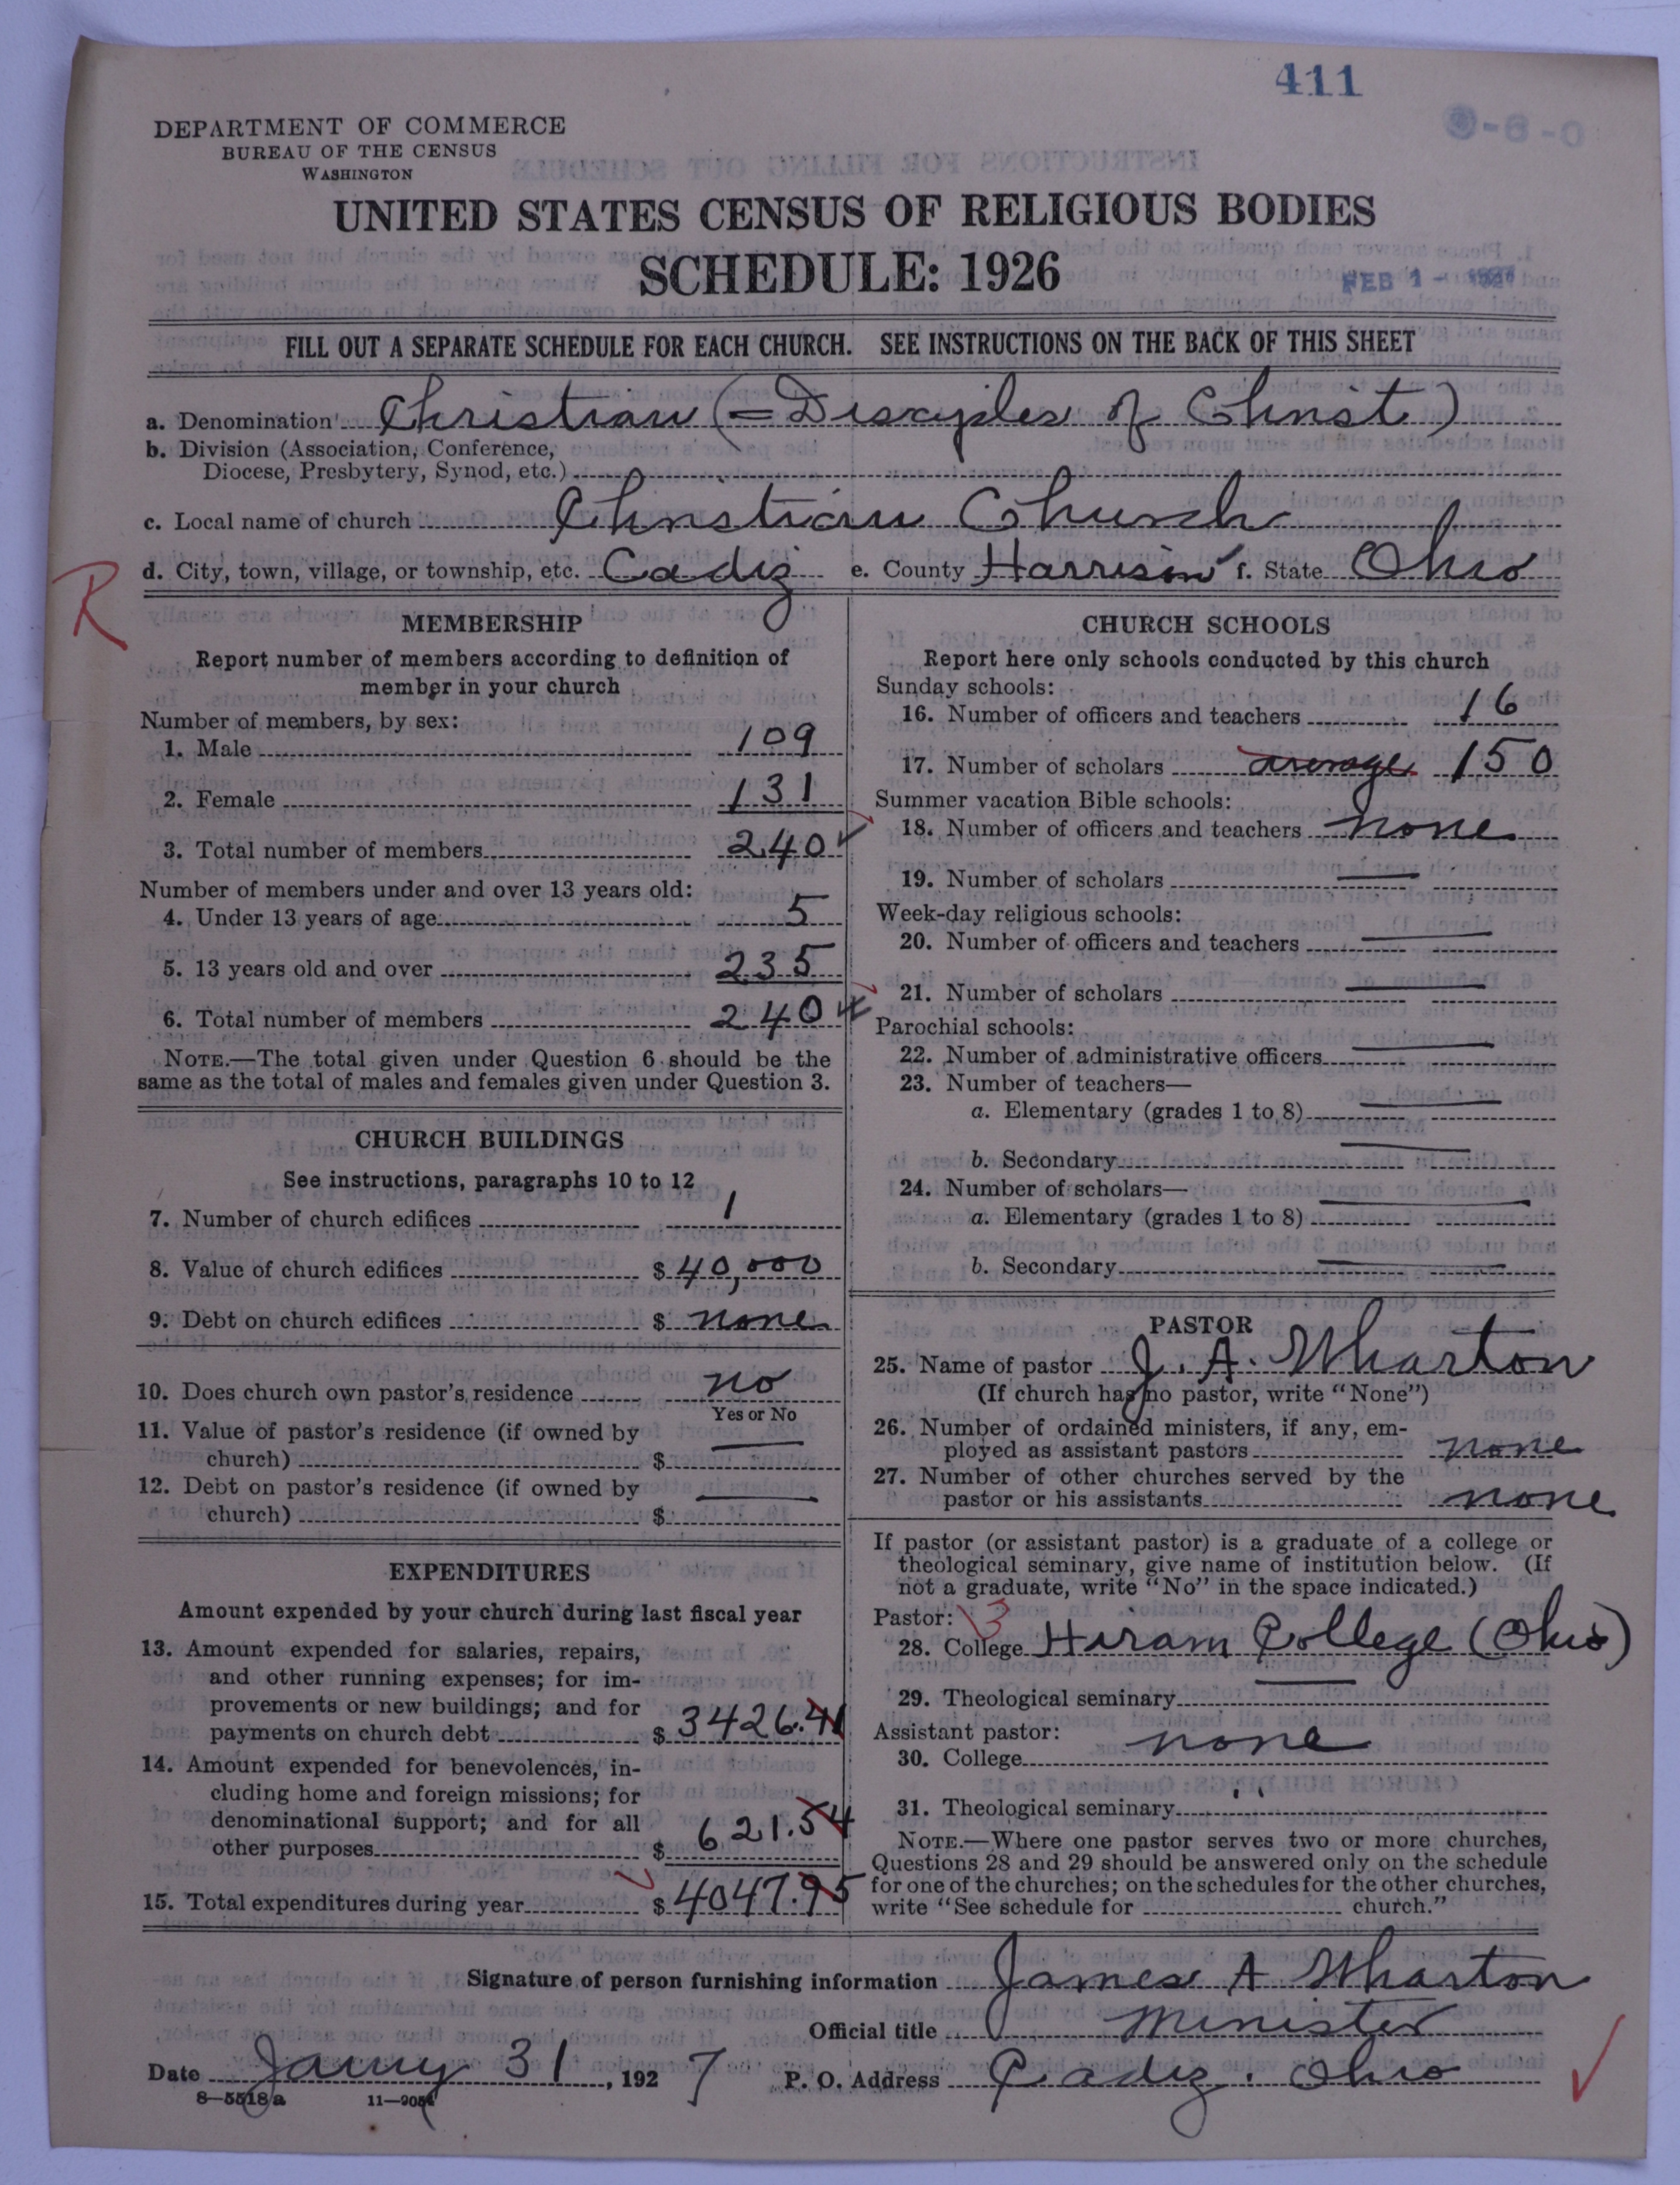 411
DEPARTMENT OF COMMERCE
BUREAU OF THE CENSUS
WASHINGTON
UNITED STATES CENSUS OF RELIGIOUS BODIES
SCHEDULE: 1926
FEB 1 - 1927
FILL OUT A SEPARATE SCHEDULE FOR EACH CHURCH. SEE INSTRUCTIONS ON THE BACK OF THIS SHEET
a. Denomination Christian (=Disciples of Christ)
b. Division (Association, Conference,
Diocese, Presbytery, Synod, etc.)
c. Local name of church Christian Church
d. City, town, village, or township, etc. Cadiz e. County Harrison f. State Ohio
R
MEMBERSHIP
Report number of members according to definition of
member in your church
Number of members, by sex:
1. Male 109
2. Female 131
3. Total number of members 240
Number of members under and over 13 years old:
4. Under 13 years of age 5
5. 13 years old and over 235
6. Total number of members 240
NOTE.—The total given under Question 6 should be the
same as the total of males and females given under Question 3.
CHURCH BUILDINGS
See instructions, paragraphs 10 to 12
7. Number of church edifices 1
8. Value of church edifices $ 40,000
9. Debt on church edifices $ none
10. Does church own pastor's residence no
Yes or No
11. Value of pastor's residence (if owned by
church) $ —
12. Debt on pastor's residence (if owned by
church) $ —
EXPENDITURES
Amount expended by your church during last fiscal year
13. Amount expended for salaries, repairs,
and other running expenses; for im-
provements or new buildings; and for
payments on church debt $ 3426.41
14. Amount expended for benevolences, in-
cluding home and foreign missions; for
denominational support; and for all
other purposes $ 621.54
15. Total expenditures during year $ 4047.95
CHURCH SCHOOLS
Report here only schools conducted by this church
Sunday schools:
16. Number of officers and teachers 16
17. Number of scholars average 150
Summer vacation Bible schools:
18. Number of officers and teachers none
19. Number of scholars —
Week-day religious schools:
20. Number of officers and teachers —
21. Number of scholars —
Parochial schools:
22. Number of administrative officers —
23. Number of teachers—
a. Elementary (grades 1 to 8) —
b. Secondary —
24. Number of scholars—
a. Elementary (grades 1 to 8) —
b. Secondary —
PASTOR
25. Name of pastor J. A. Wharton
(If church has no pastor, write "None")
26. Number of ordained ministers, if any, em-
ployed as assistant pastors none
27. Number of other churches served by the
pastor or his assistants none
If pastor (or assistant pastor) is a graduate of a college or
theological seminary, give name of institution below. (If
not a graduate, write "No" in the space indicated.)
Pastor: 3
28. College Hiram College (Ohio)
29. Theological seminary —
Assistant pastor:
30. College none
31. Theological seminary "
NOTE.—Where one pastor serves two or more churches,
Questions 28 and 29 should be answered only on the schedule
for one of the churches; on the schedules for the other churches,
write "See schedule for church."
Signature of person furnishing information James A Wharton
Official title Minister
Date Jany 31, 1927 P. O. Address Cadiz, Ohio
8—5518a 11—9054